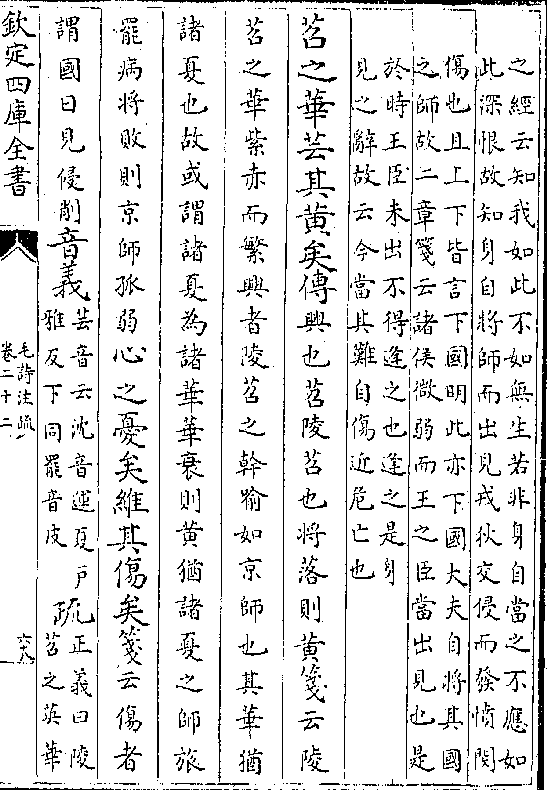 之經云知我如此不如無生若非身自當之不應如
此深恨故知身自將師而出見戎狄交侵而發憤閔
傷也且上下皆言下國明此亦下國大夫自將其國
之師故二章箋云諸侯微弱而王之臣當出見也是
於時王臣未出不得逢之也逢之是身
見之辭故云今當其難自傷近危亡也
苕之華芸其黄矣傳興也苕陵苕也將落則黄箋云陵
苕之華紫赤而繁興者陵苕之幹喻如京師也其華猶
諸夏也故或謂諸夏為諸華華衰則黄猶諸夏之師旅
罷病將敗則京師孤弱心之憂矣維其傷矣箋云傷者
謂國日見侵削音義芸音云沈音運夏户
雅反下同罷音皮
疏正義曰陵
苕之英華
欽定四庫全書
毛詩注疏
卷二十二
六十八